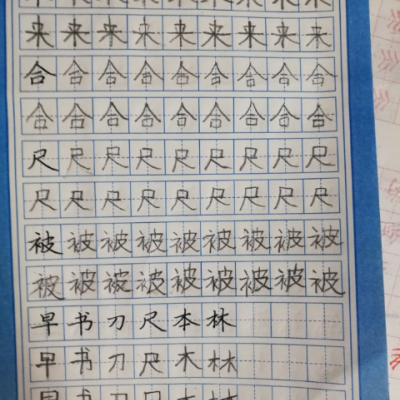 来来来来来来来来来
合合合合合合合合合
合合合合合合合合合
尺尺尺尺尺尺尺尺尺
尺尺尺尺尺尺尺尺尺
被被被被被被被被被
被被被被被被被被被
早书刀尺本林
早书刀尺木林